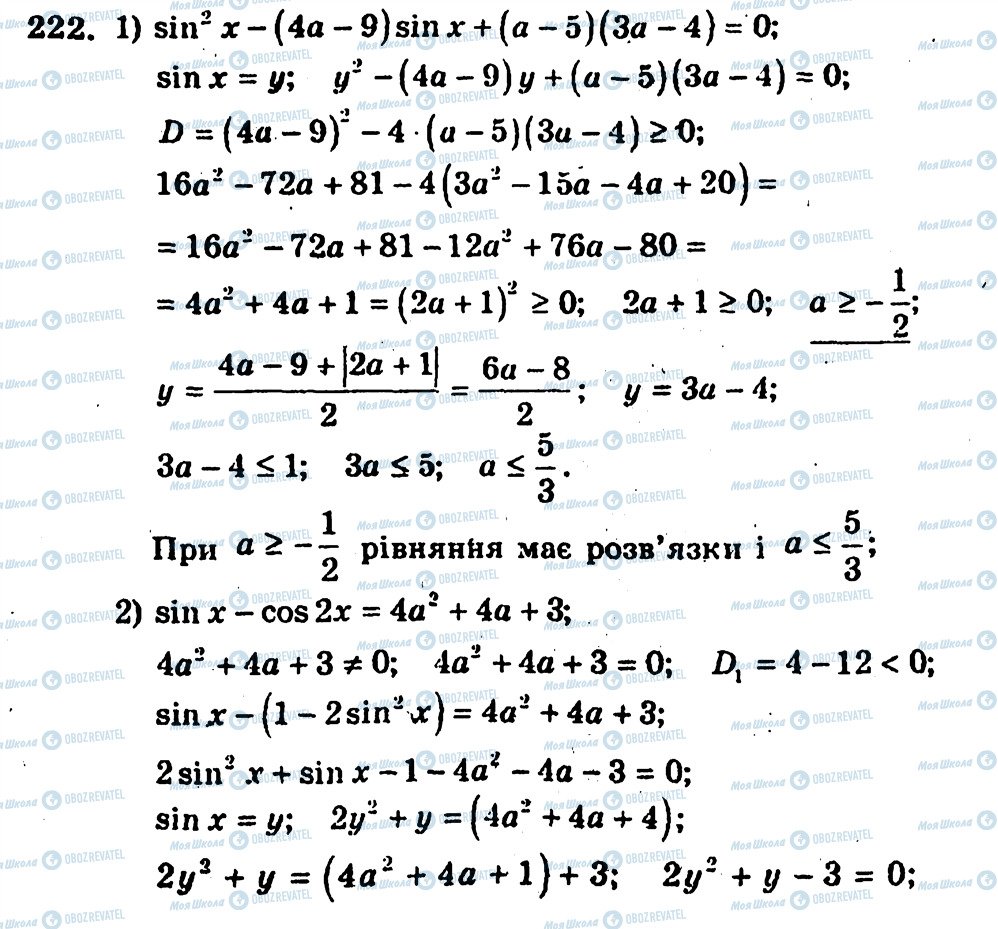 222. 1) sin² x − (4a − 9) sin x + (a − 5)(3a − 4) = 0;
sin x = y; y² − (4a − 9) y + (a − 5)(3a − 4) = 0;
D = (4a − 9)² − 4 · (a − 5)(3a − 4) ≥ 0;
16a² − 72a + 81 − 4(3a² − 15a − 4a + 20) =
= 16a² − 72a + 81 − 12a² + 76a − 80 =
= 4a² + 4a + 1 = (2a + 1)² ≥ 0; 2a + 1 ≥ 0; a ≥ −1/2;
y = (4a − 9 + |2a + 1|)/2 = (6a − 8)/2; y = 3a − 4;
3a − 4 ≤ 1; 3a ≤ 5; a ≤ 5/3.
При a ≥ −1/2 рівняння має розв’язки і a ≤ 5/3;
2) sin x − cos 2x = 4a² + 4a + 3;
4a² + 4a + 3 ≠ 0; 4a² + 4a + 3 = 0; D₁ = 4 − 12 < 0;
sin x − (1 − 2 sin² x) = 4a² + 4a + 3;
2 sin² x + sin x − 1 − 4a² − 4a − 3 = 0;
sin x = y; 2y² + y = (4a² + 4a + 4);
2y² + y = (4a² + 4a + 1) + 3; 2y² + y − 3 = 0;